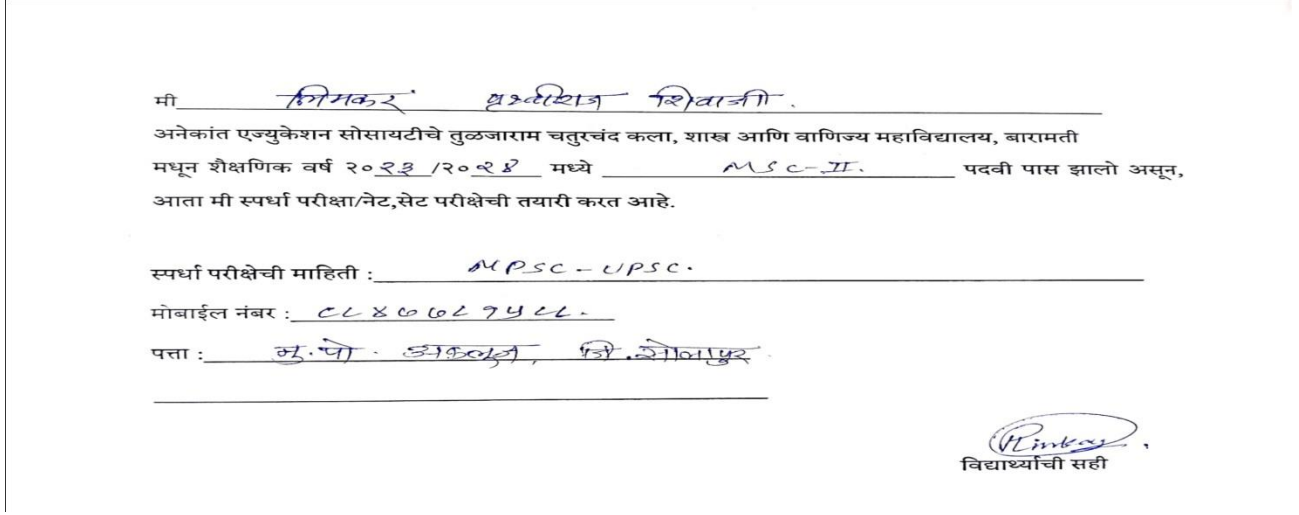 मी निमकर पृथ्वीराज शिवाजी.
अनेकांत एज्युकेशन सोसायटीचे तुळजाराम चतुरचंद कला, शास्त्र आणि वाणिज्य महाविद्यालय, बारामती
मधून शैक्षणिक वर्ष २०२३/२०२४ मध्ये MSC-II. पदवी पास झालो असून,
आता मी स्पर्धा परीक्षा/नेट,सेट परीक्षेची तयारी करत आहे.
स्पर्धा परीक्षेची माहिती : MPSC - UPSC.
मोबाईल नंबर :
पत्ता : मु.पो. अकलूज, जि.सोलापुर
विद्यार्थ्याची सही